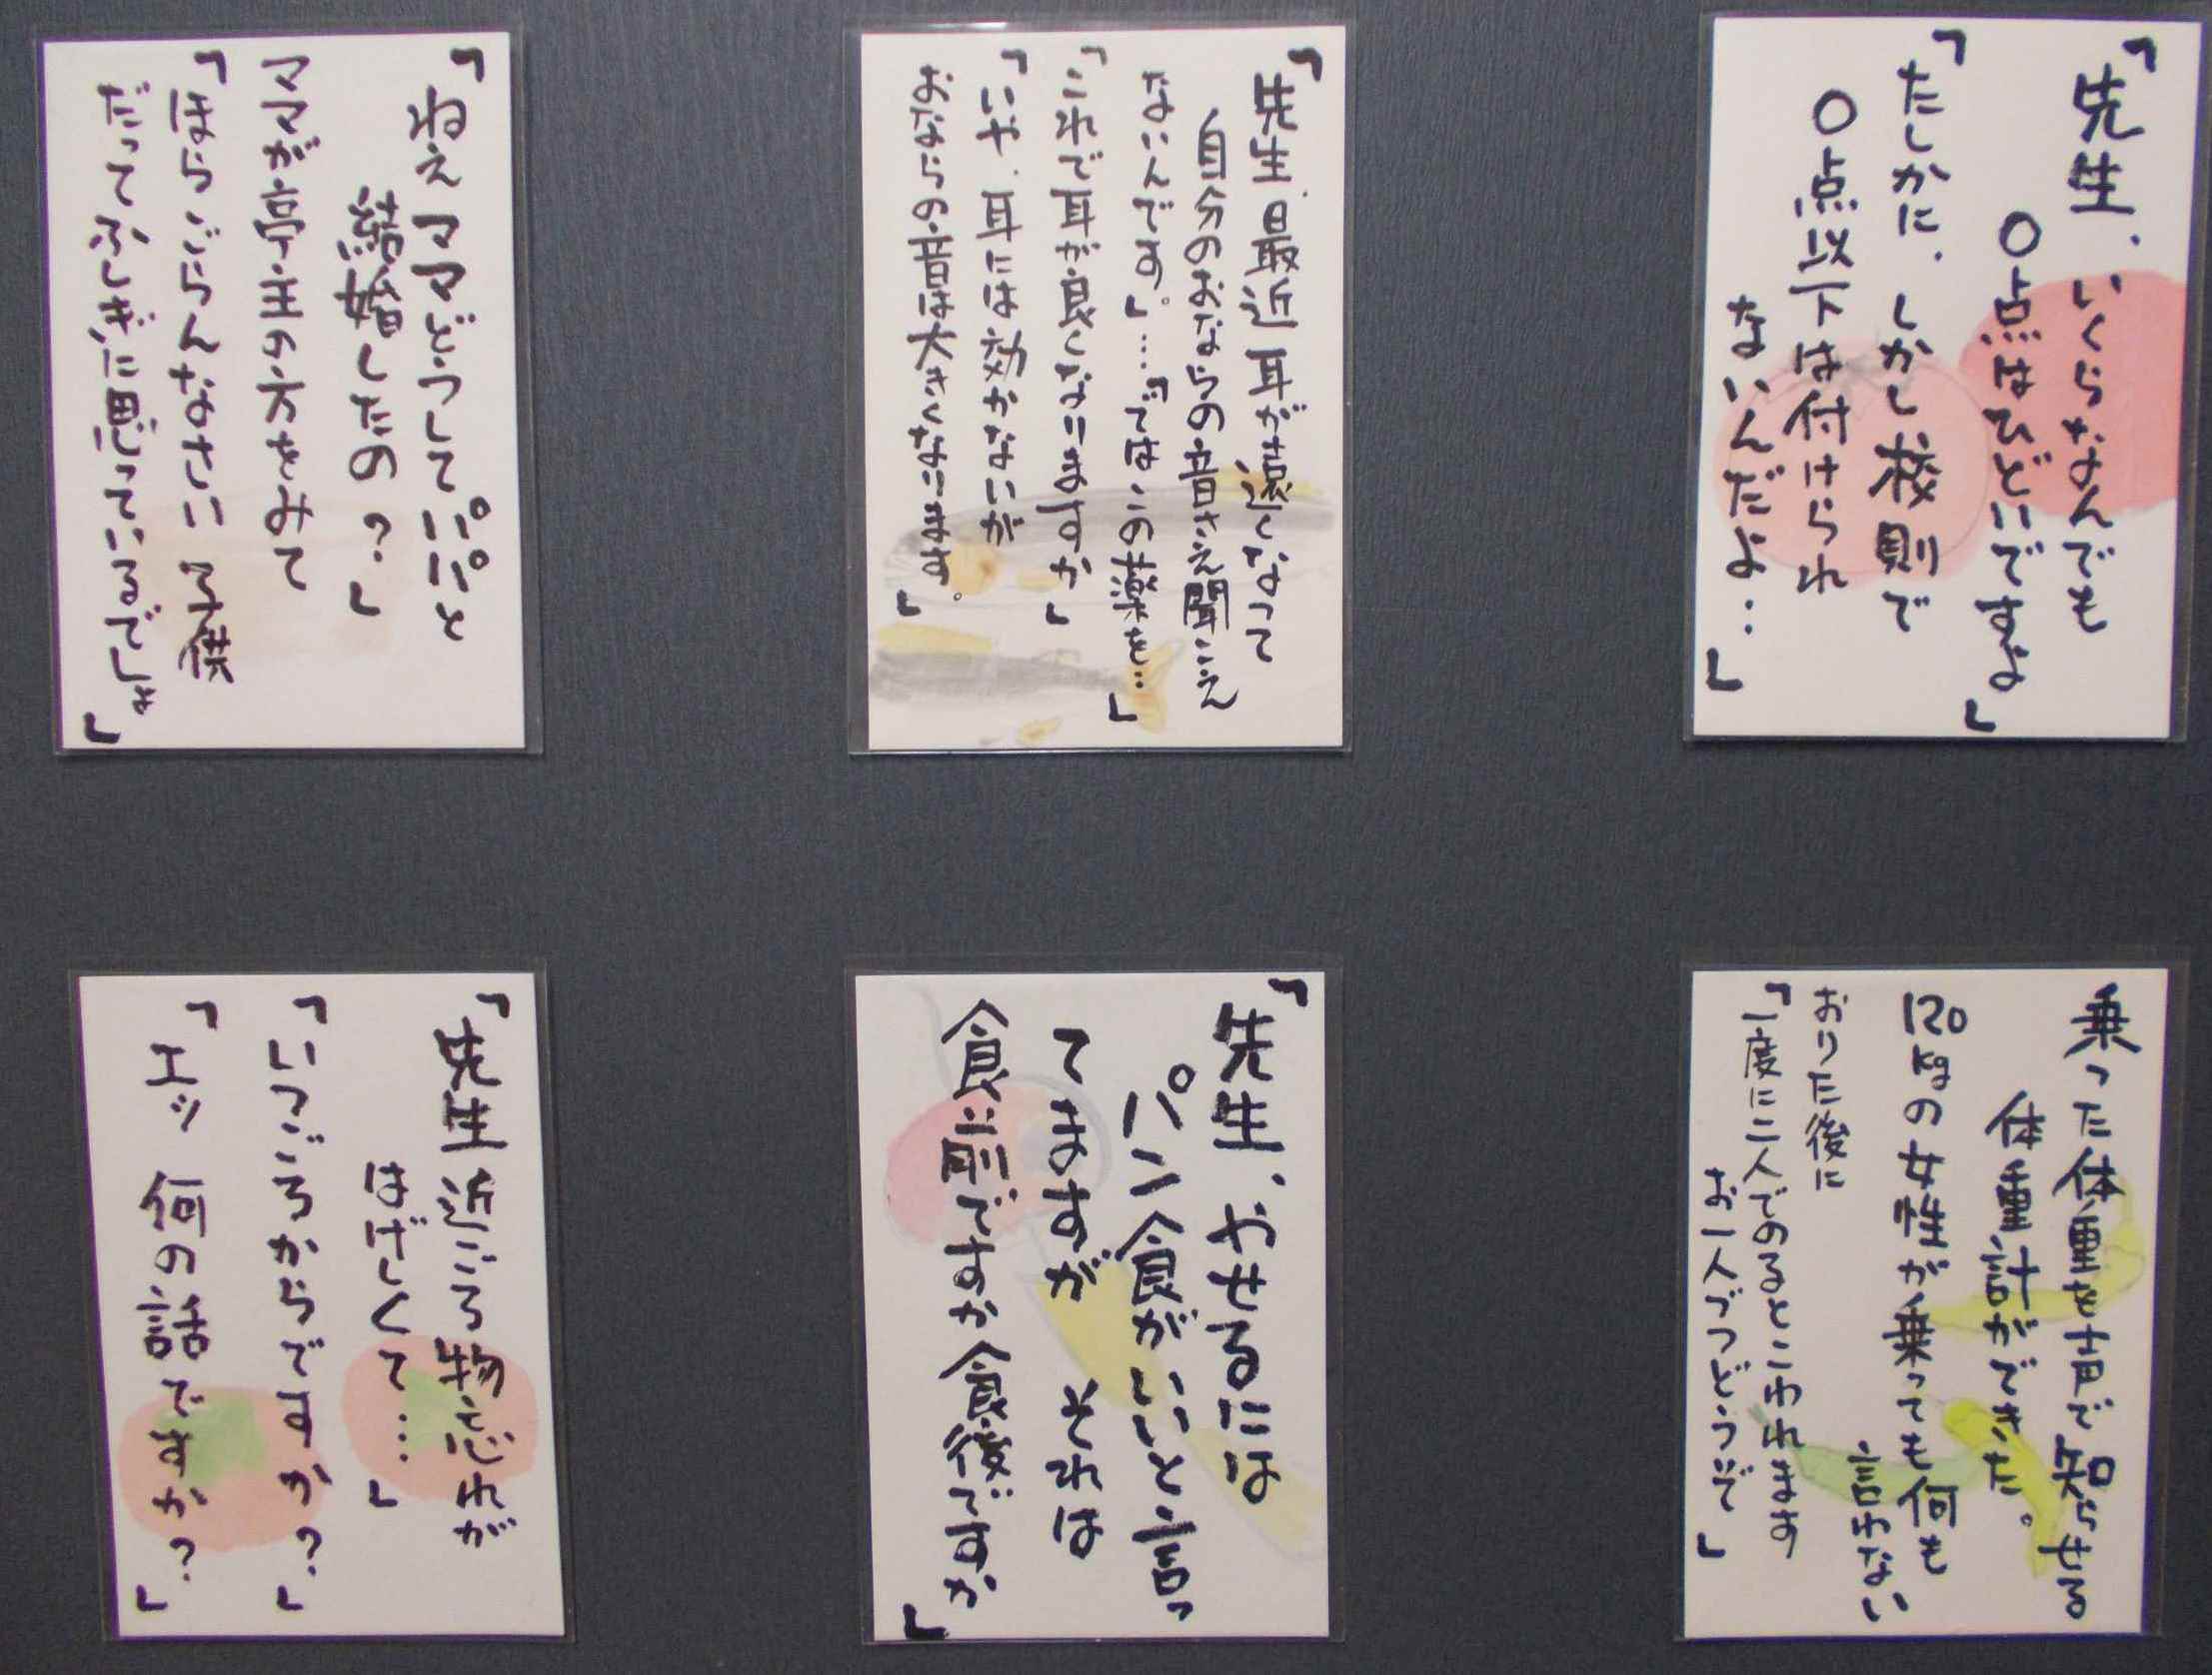 「先生、いくらなんでも
〇点はひどいですよ」
「たしかに、しかし校則で
〇点以下は付けられ
ないんだよ…」
「先生、最近耳が遠くなって
自分のおならの音さえ聞こえ
ないんです。」…「ではこの薬を…」
「これで耳が良くなりますか」
「いや、耳には効かないが
おならの音は大きくなります。」
「ねえママどうしてパパと
結婚したの?」
ママが亭主の方をみて
「ほらごらんなさい 子供
だってふしぎに思っているでしょ」
乗った体重を声で知らせる
体重計ができた。
120kgの女性が乗っても何も
言わない
おりた後に
「一度に二人でのるとこわれます
お一人づつどうぞ」
「先生、やせるには
パン食がいいと言っ
てますが それは
食前ですか食後ですか」
「先生 近ごろ物忘れが
はげしくて…」
「いつごろからですか?」
「エッ 何の話ですか?」